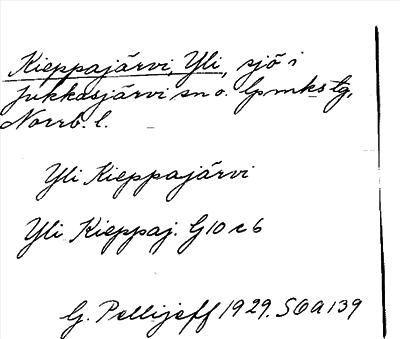 Kieppajärvi, Yli, sjö i
Jukkasjärvi sn o. lpmks tg,
Norrb. l.
Yli Kieppajärvi
Yli Kieppaj. G10 c 6
G. Pellijeff 1929. SOA 139